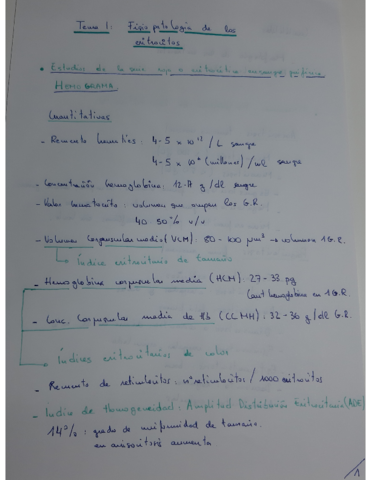 Tema 1: Fisiopatología de los
eritrocitos
• Estudio de la serie roja o eritrocitica en sangre periférica
HEMOGRAMA.
Cuantitativas
- Recuento hematíes: 4-5 x 10¹² / L sangre
4-5 x 10⁶ (millones) / mL sangre
- Concentración hemoglobina: 12-17 g/dL sangre
- Valor hematocrito: volumen que ocupan los G.R.
40-50% v/v
- Volumen corpuscular medio (VCM): 80-100 µm³ → volumen 1 G.R.
→ Índice eritrocitario de tamaño
- Hemoglobina corpuscular media (HCM): 27-33 pg
(cant hemoglobina en 1 G.R
- Conc. Corpuscular media de Hb (CCMH): 32-36 g/dL G.R.
→ Índices eritrocitarios de color
- Recuento de reticulocitos: nº reticulocitos / 1000 eritrocitos
- Indice de Homogeneidad. Amplitud Distribución Eritrocitaria (ADE)
14%: grado de uniformidad de tamaño.
en anisocitosis aumenta
1